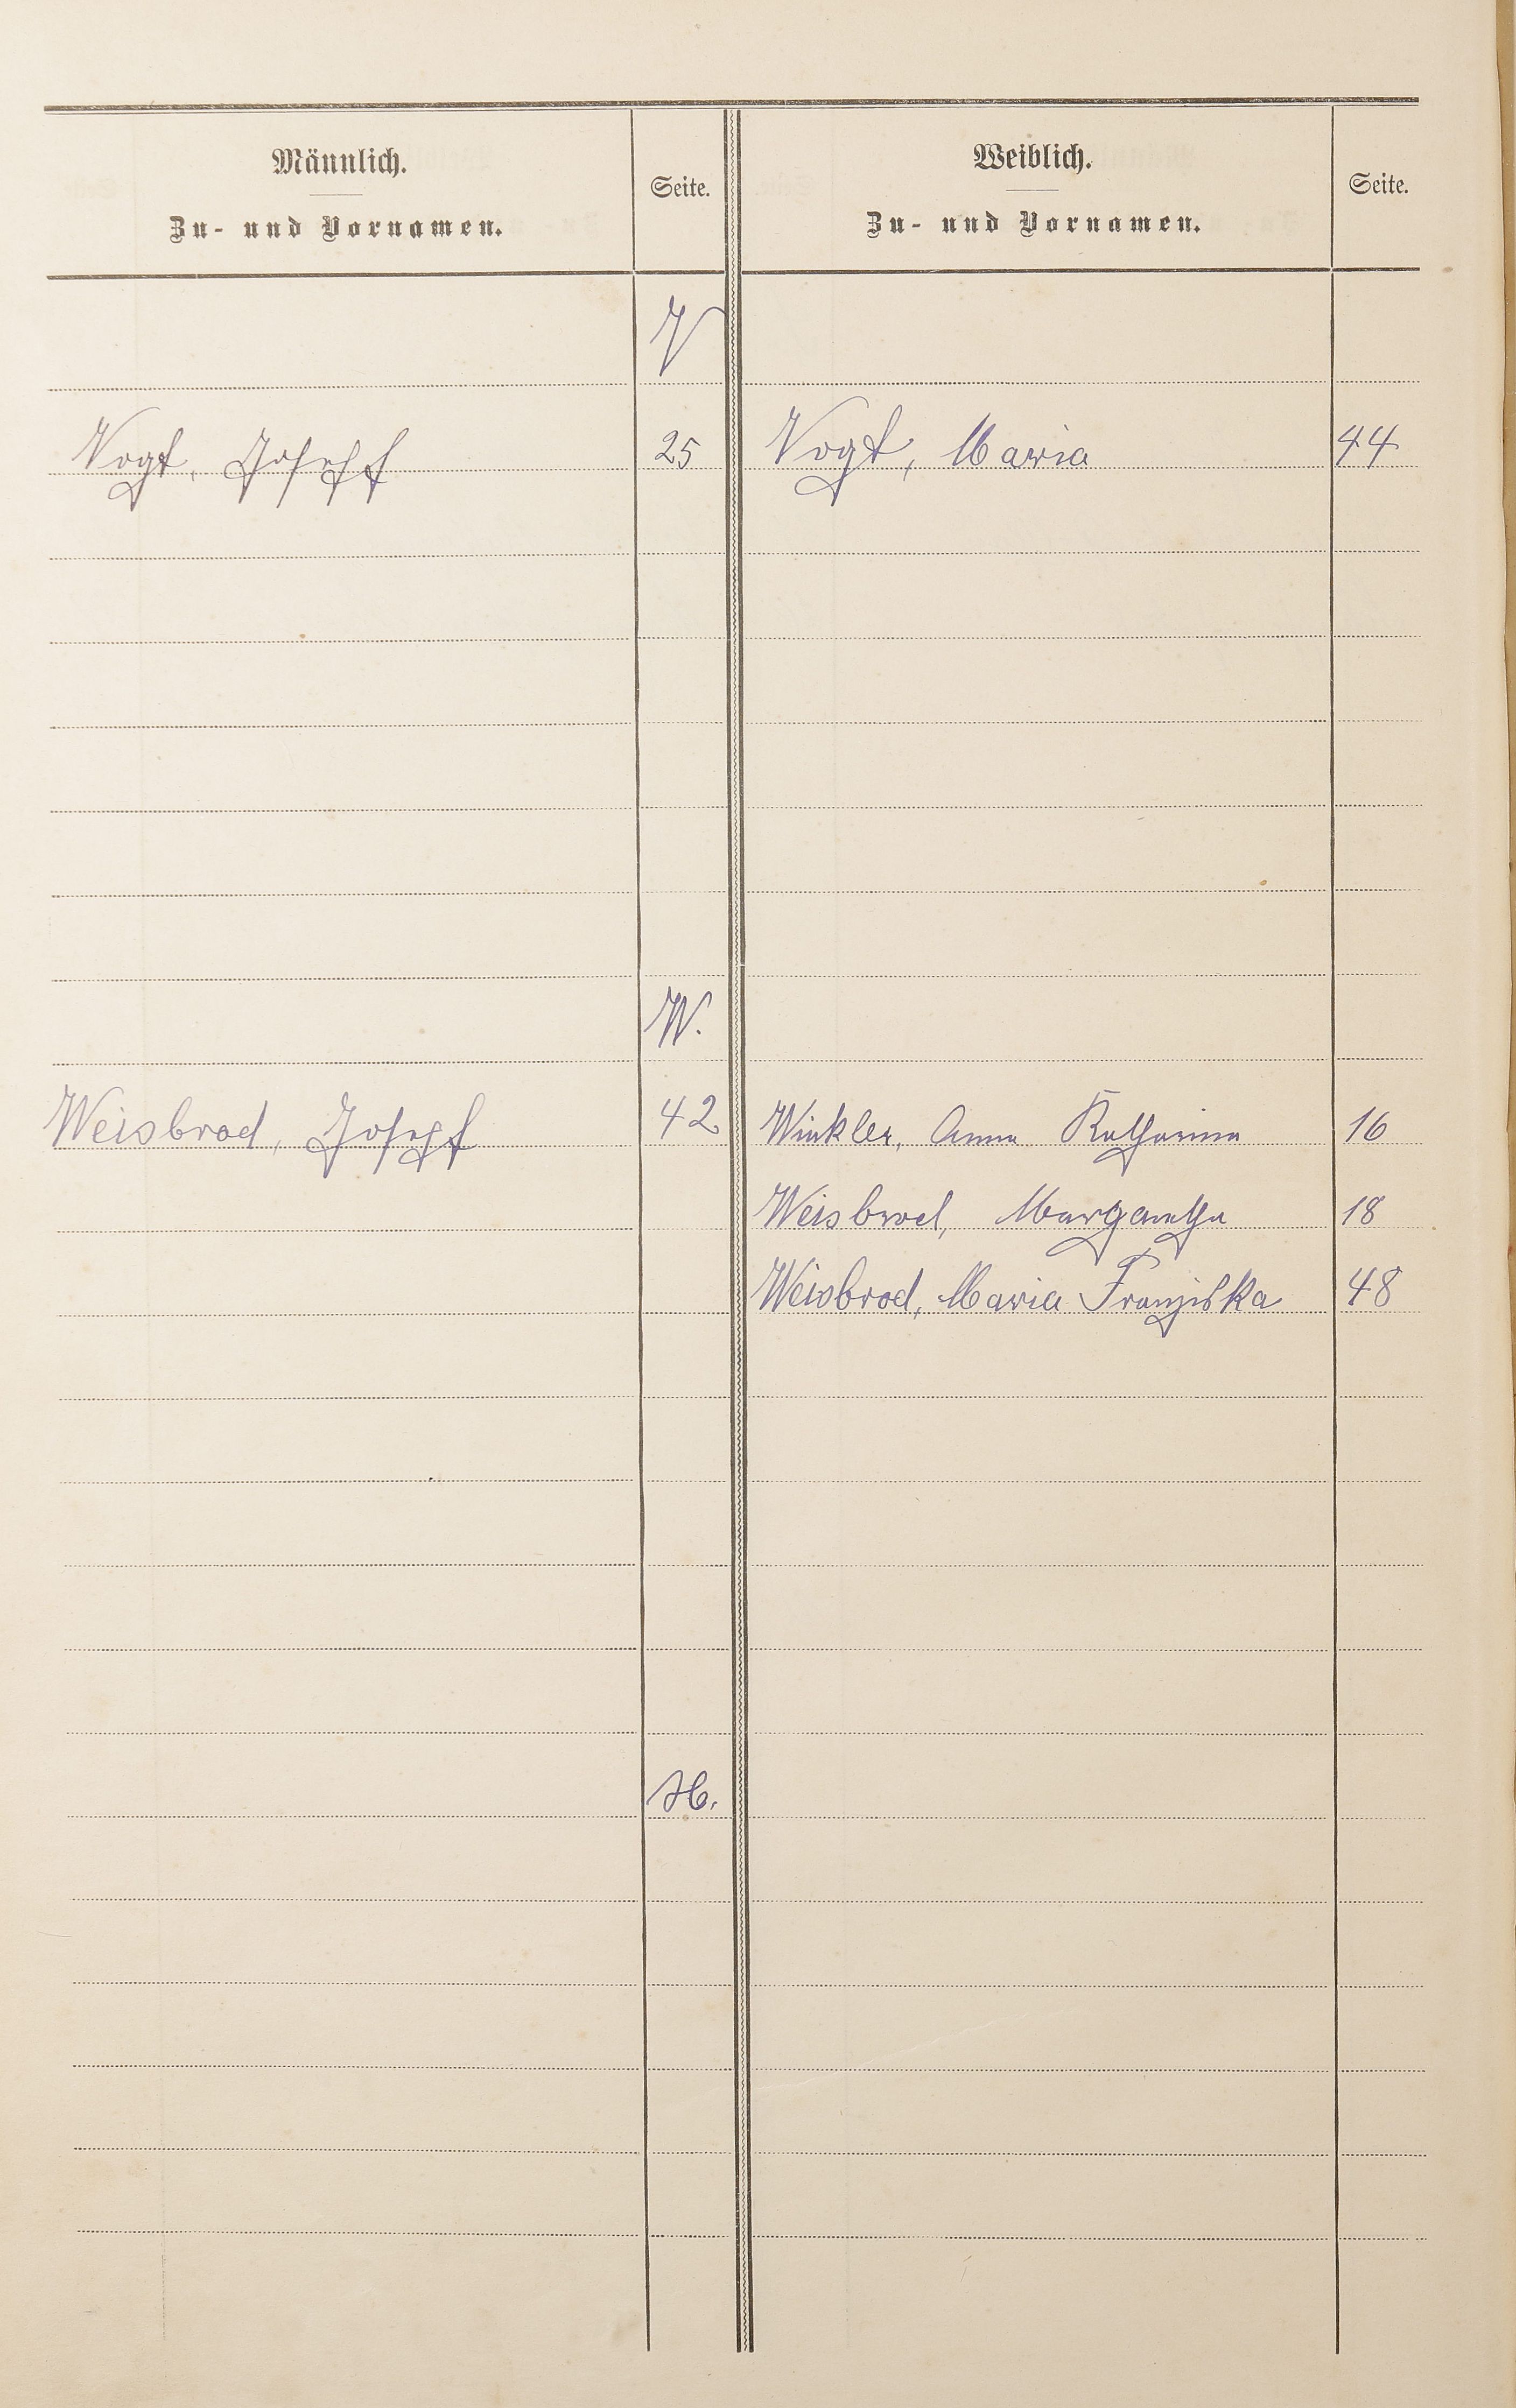 Männlich.
Zu- und Vornamen.
Seite.
Weiblich.
Zu- und Vornamen.
Seite.
V
Vogt, Joseph 25 Vogt, Maria 44
W.
Weisbrod, Joseph 42 Winkler, Anna Katharina 16
Weisbrod, Margaretha 18
Weisbrod, Maria Franziska 48